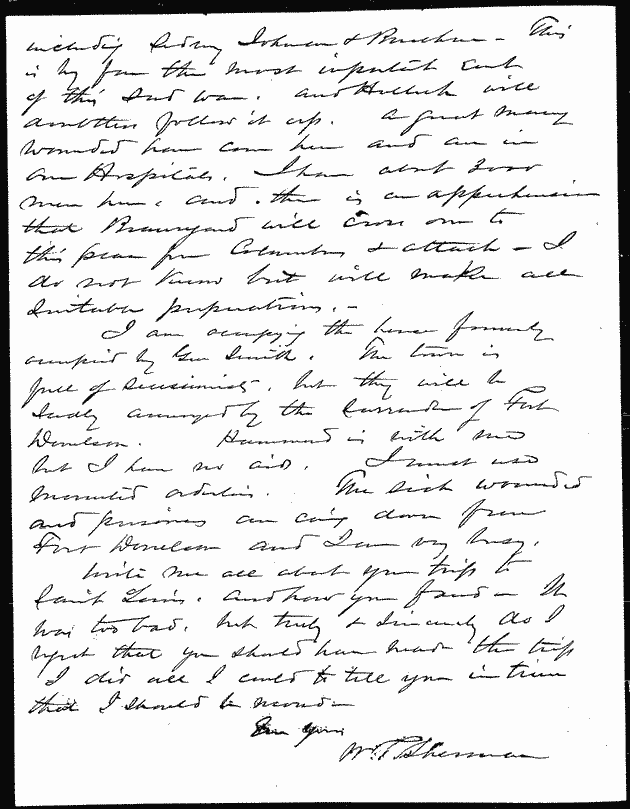 including Sidney Johnson & Buckner - This
is by far the most important event
of this sad war. and Halleck will
doubtless follow it up. a great many
wounded have come here and are in
our Hospitals. I have about 2000
men here, and there is an apprehension
that Beauregard will cross over to
this place from Columbus & attack - I
do not know but will make all
suitable preparations. -
I am occupying the house formerly
occupied by Gen Smith. The town is
full of secessionists, but they will be
sadly by the surrender of Fort
Donelson. Hammond is with me
but I have no aids. I must use
mounted orderlies. The sick wounded
and prisoners are coming down from
Fort Donelson and I am very busy.
Write me all about your trip to
Saint Louis, and how you fared - It
was too bad, but truly & sincerely do I
regret that you should have made the trip
I did all I could to tell you in time
that I should be moved -
Yours
W. T. Sherman